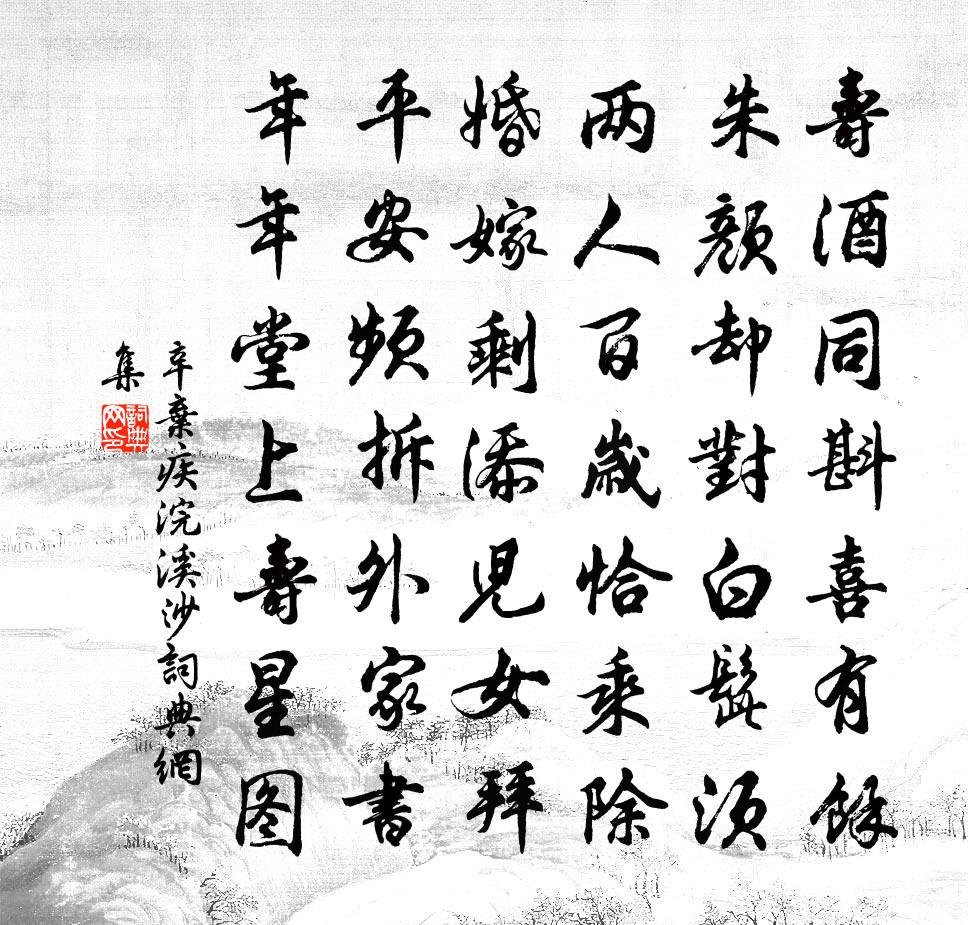 壽酒同斟喜有餘
朱顏却對白髭須
两人百歲恰乘除
婚嫁剩添兒女拜
平安頻拆外家書
年年堂上壽星图
辛棄疾浣溪沙詞典網
集
詞典
网印